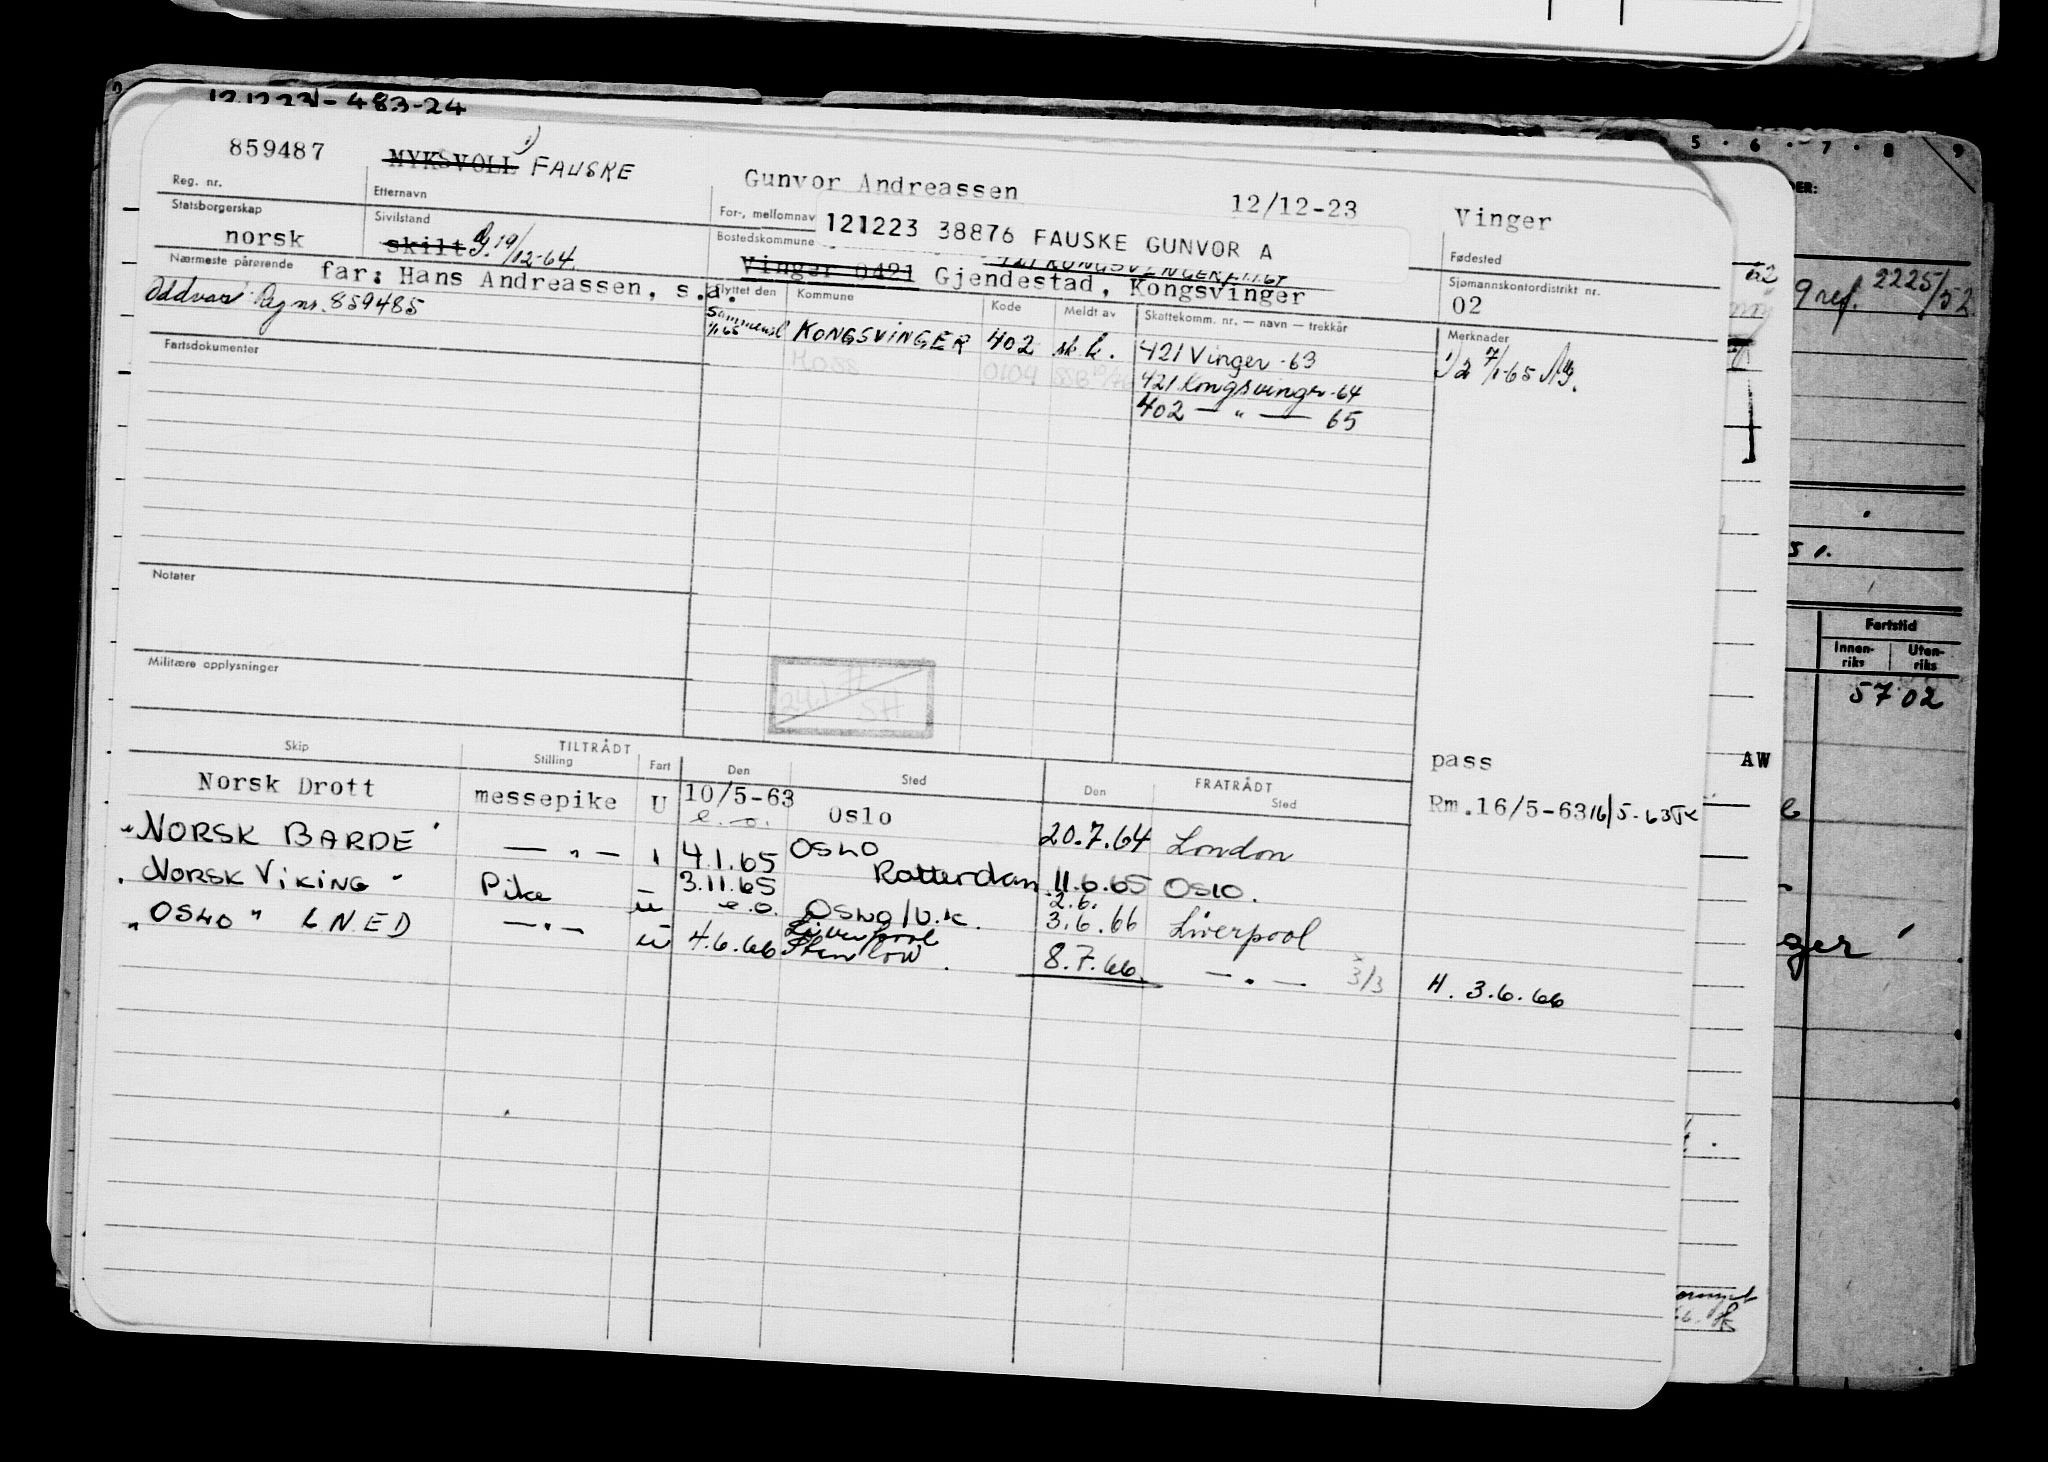 121223 - 483-24
859487 MYKSVOLL 1) FAUSKE Gunvor Andreassen 12/12-23 Vinger
Reg. nr. Etternavn For-, mellomnavn Fødested
121223 38876 FAUSKE GUNVOR A
Statsborgerskap Sivilstand Bostedskommune Sjømannskontordistrikt nr.
norsk skilt g. 19/12-64 Vinger 0421 Gjendestad, Kongsvinger 02
421 KONGSVINGER
Nærmeste pårørende far: Hans Andreassen, s.a.
Oddvar Reg nr. 859485
Flyttet den Kommune Kode Meldt av Skattekomm. nr. — navn — trekkår Merknader
Sammensl 1/1 65 KONGSVINGER 402 sk.k. 421 Vinger -63
Moss 0104 421 Kongsvinger -64
402 — " — 65
1) 2 7/1-65
Fartsdokumenter
Notater
Militære opplysninger
Skip TILTRÅDT FRATRÅDT
Stilling Fart Den Sted Den Sted
pass
Norsk Drott messepike U 10/5-63 Oslo 20.7.64 London Rm. 16/5-63 16/5-63
e.o.
"NORSK BARDE" — " — 4.1.65 OSLO 11.6.65 OSLO.
"NORSK VIKING" Pike 3.11.65 Rotterdam 2.6.
e.o. OSLO/U.K. 3.6.66 Liverpool
"OSLO" LNED — " — U 4.6.66 Liverpool
Stanlow 8.7.66 — " — 3/3 H. 3.6.66
9 ref. 2225/52
51.
Fartstid
Innen-riks Uten-riks
5702
AW
5 . 6 . 7 . 8 9